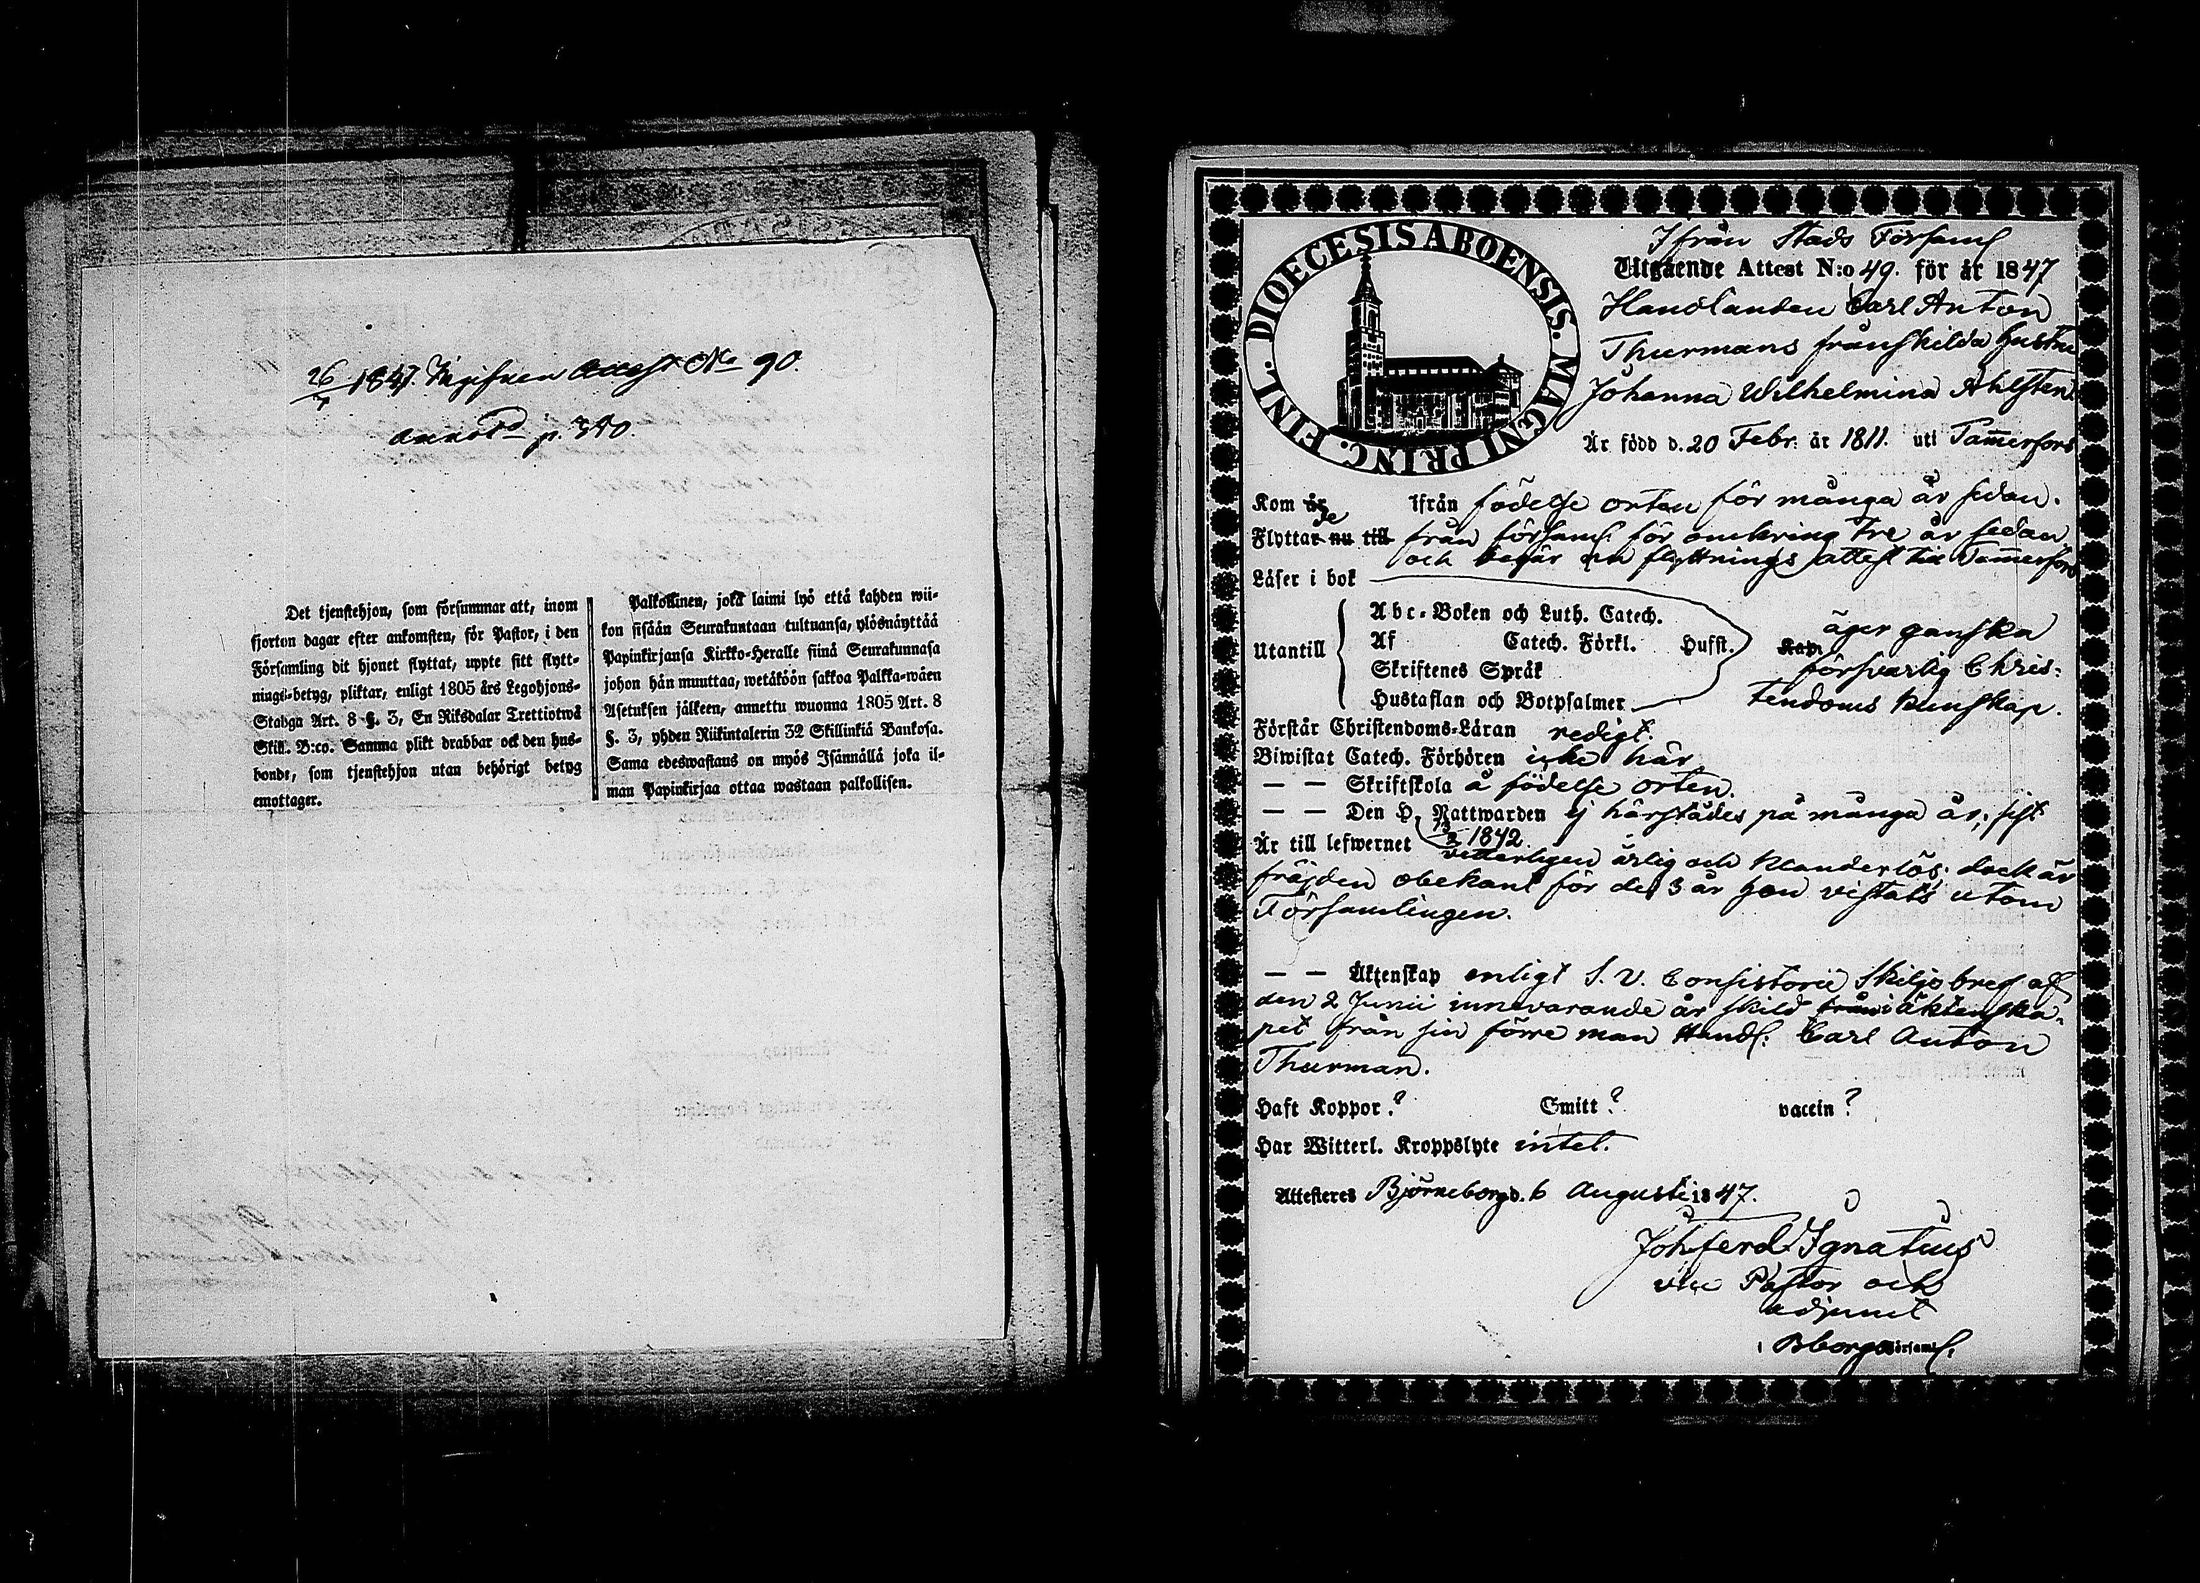 1847. Ingifven Attest No 90.
annot. p. 340.
Det tjenstehjon, som försummar att, inom
fjorton dagar efter ankomsten, för Pastor, i den
Församling dit hjonet flyttat, uppte sitt flytt-
nings-betyg, pliktar, enligt 1805 års Legohjons-
Stadga Art. 8 §. 3, En Riksdalar Trettiotwå
Skill. B:co. Samma plikt drabbar ock den hus-
bonde, som tjenstehjon utan behörigt betyg
emottager.
Palkollinen, joka laimi lyö että kahden wii-
kon sisään Seurakuntaan tultuansa, ylösnäyttää
Papinkirjansa Kirkko-Herralle siinä Seurakunnasa
johon hän muuttaa, wetäköön sakkoa Palkka-wäen
Asetuksen jälkeen, annettu wuonna 1805 Art. 8
§. 3, yhden Riikintalerin 32 Skillinkiä Bankosa.
Sama edeswastaus on myös Isännällä joka il-
man Papinkirjaa ottaa wastaan palkollisen.
DIOECESIS ABOENSIS. MAGNI PRINC. FINL.
Ifrån Stads Församl
Utgående Attest N:o 49. för år 1847
Handlanden Carl Anton
Thurmans frånskilda hustru
Johanna Wilhelmina Ahlsten
Är född d. 20 Febr. år 1811. uti Tammerfors
Kom år ifrån födelse orten för många år sedan.
Flyttar nu till de från församl. för omkring tre år sedan
och begär nu flyttnings attest till Tammerfors
Läser i bok
Utantill
Abc-Boken och Luth. Catech.
Af Catech. Förkl. Hufst.
Skriftenes Språk
Hustaflan och Botpsalmer
äger ganska
försvarlig Chris-
tendoms kunskap.
Förstår Christendoms-Läran redigt.
Biwistat Catech. Förhören icke här
— — Skriftskola å födelse orten.
— — Den H. Nattwarden ej härstädes på många år, sist
1842.
Är till lefwernet vitterligen ärlig och klanderlös; dock är
fräjden obekant för de 3 år hon vistats utom
Församlingen.
— — Äktenskap enligt S. V. Consistorii Skiljobref af
den 2 Junii innevarande år skild från äktenska-
pet från sin förre man Handl: Carl Anton
Thurman.
Haft Koppor? Smitt? vaccin?
Har Witterl. Kroppslyte intet.
Attesteras Björneborg d. 6 Augusti 1847.
Joh. Ferd. Ignatius
vice Pastor och
adjunct
i Bborgs Församl.